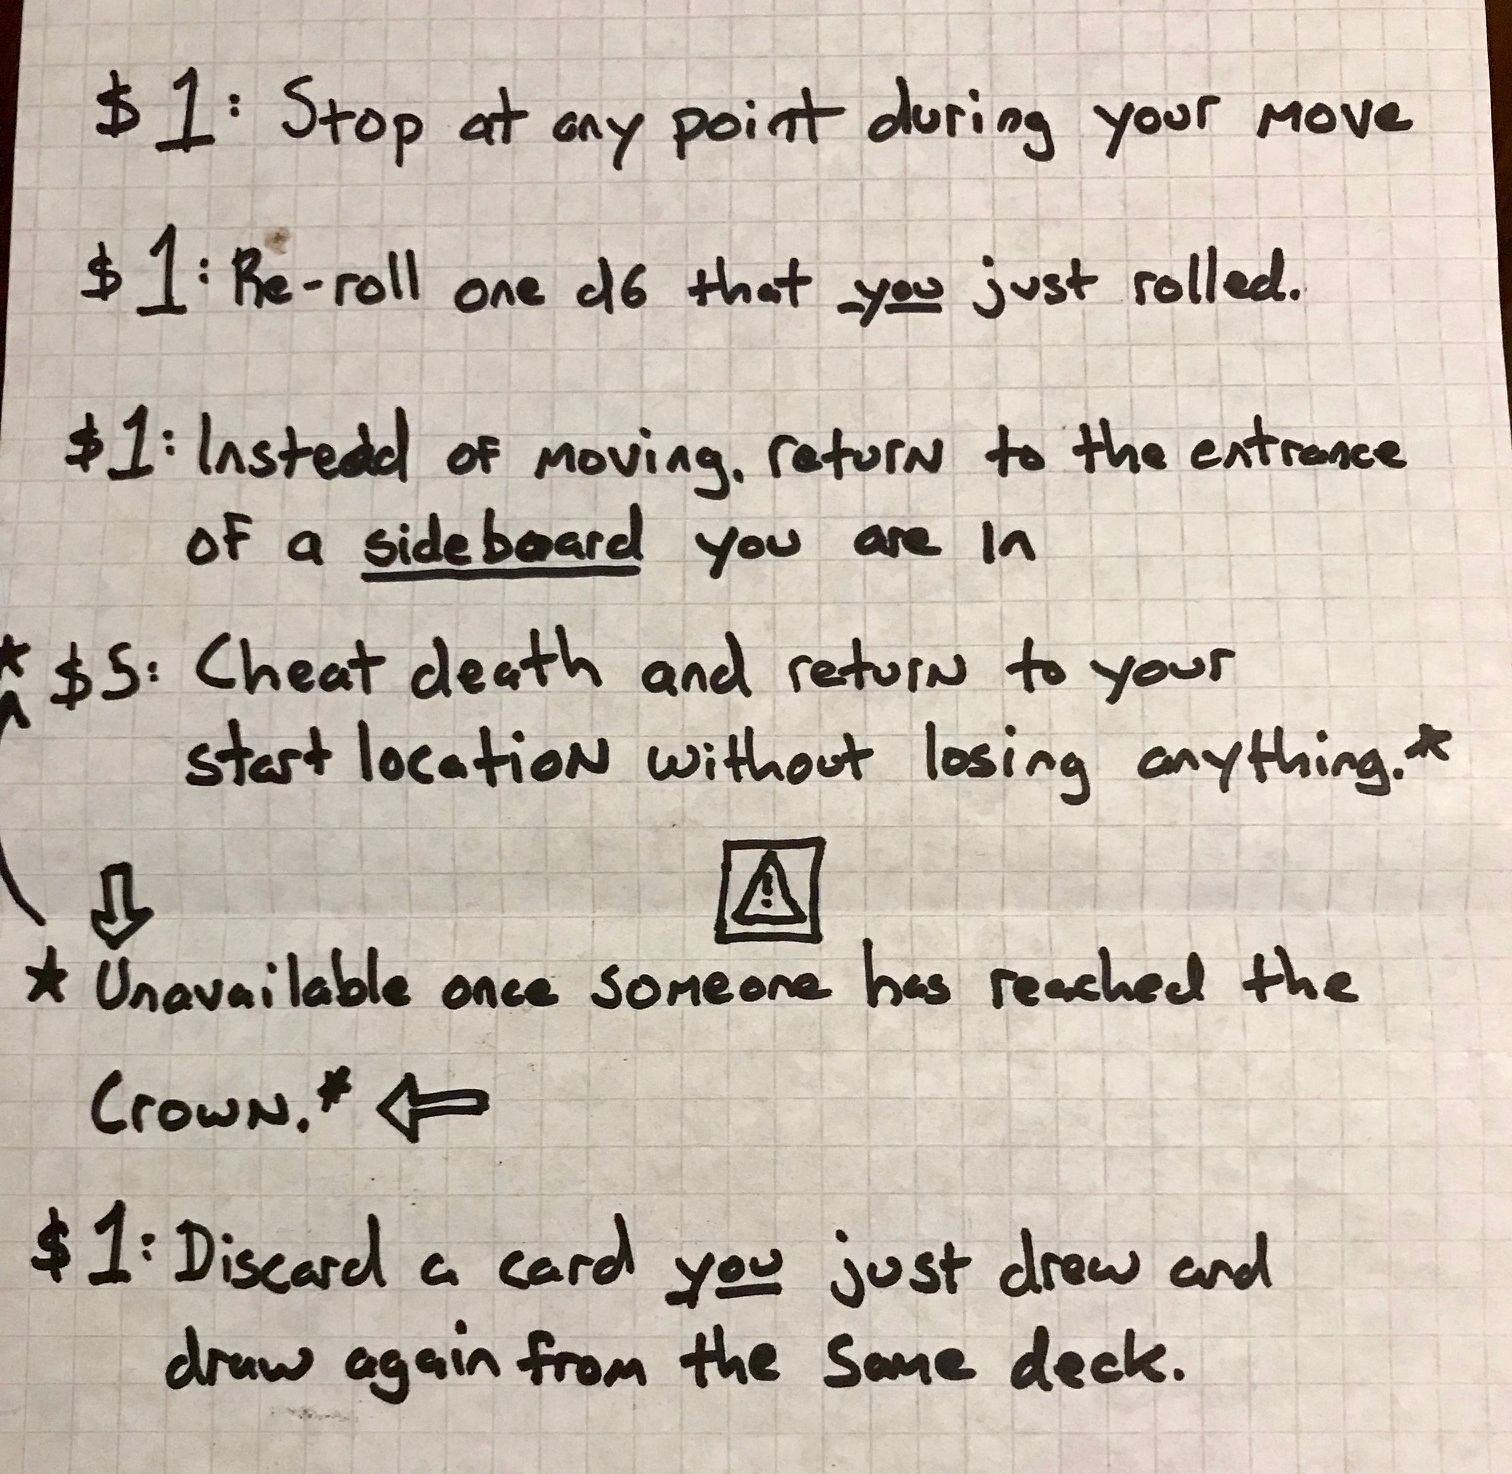 $1: Stop at any point during your move
$1: Re-roll one d6 that you just rolled.
$1: Instead of moving, return to the entrance
of a sideboard you are in
* $5: Cheat death and return to your
start location without losing anything.*
* Unavailable once someone has reached the
Crown.*
$1: Discard a card you just drew and
draw again from the same deck.